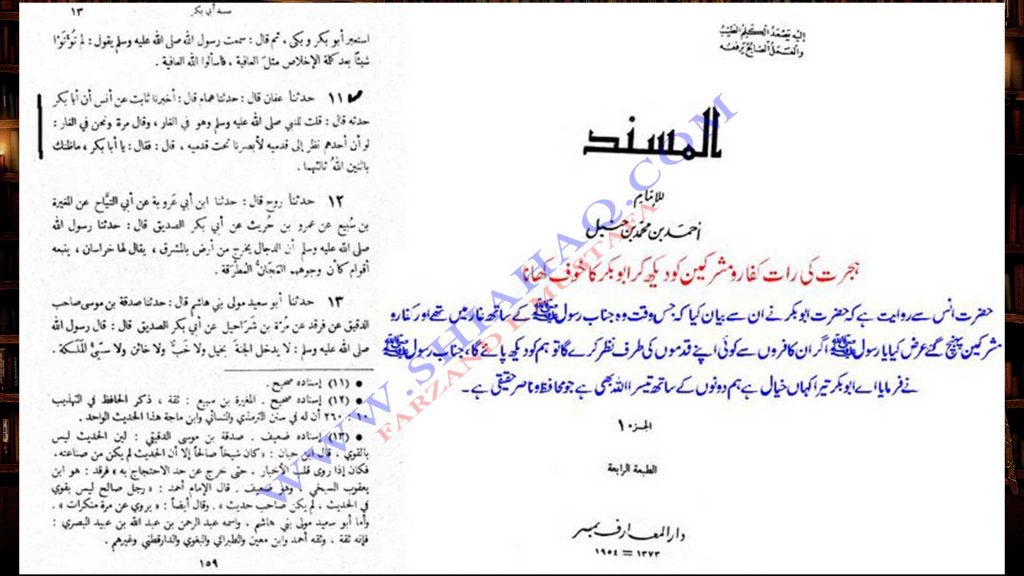 مسند أبي بكر ١٣
استعبر أبو بكر وبكى ، ثم قال : سمعت رسول الله صلى الله عليه وسلم يقول : لم تُؤتَوْا
شيئًا بعد كلمة الإخلاص مثلَ العافية ، فاسألوا الله العافية .
١١ حدثنا عفان قال : حدثنا همام قال : أخبرنا ثابت عن أنس أن أبا بكر
حدثه قال : قلت للنبي صلى الله عليه وسلم وهو في الغار ، وقال مرة ونحن في الغار :
لو أن أحدهم نظر إلى قدميه لأبصرنا تحت قدميه ، قال : فقال : يا أبا بكر ، ما ظنك
باثنين اللهُ ثالثهما .
١٢ حدثنا روح قال : حدثنا ابن أبي عَروبة عن أبي التيَّاح عن المغيرة
بن سُبَيع عن عمرو بن حُريث عن أبي بكر الصديق قال : حدثنا رسول الله
صلى الله عليه وسلم أن الدجال يخرج من أرض بالمشرق ، يقال لها خراسان ، يتبعه
أقوام كأن وجوههم المَجَانُّ المُطْرَقة .
١٣ حدثنا أبو سعيد مولى بني هاشم قال : حدثنا صدقة بن موسى صاحب
الدقيق عن فرقد عن مُرّة بن شَرَاحيل عن أبي بكر الصديق قال : قال رسول الله
صلى الله عليه وسلم : لا يدخل الجنة بخيل ولا خَبٌّ ولا خائن ولا سيّئُ المَلَكة .
(١١) إسناده صحيح .
(١٢) إسناده صحيح . المغيرة بن سبيع : ثقة ، ذكر الحافظ في التهذيب
١٠ : ٢٦٠ أن له في سنن الترمذي والنسائي وابن ماجة هذا الحديث الواحد .
(١٣) إسناده ضعيف . صدقة بن موسى الدقيقي : لين الحديث ليس
بالقوي ، قال ابن حبان : «كان شيخًا صالحًا إلا أن الحديث لم يكن من صناعته .
فكان إذا روى قلب الأخبار . حتى خرج عن حد الاحتجاج به» فرقد : هو ابن
يعقوب السبخي ، وهو ضعيف . قال الإمام أحمد : «رجل صالح ليس بقوي
في الحديث ، لم يكن صاحب حديث» . وقال أيضًا : «يروي عن مرة منكرات» .
وأما أبو سعيد مولى بني هاشم ، واسمه عبد الرحمن بن عبد الله بن عبيد البصري :
فإنه ثقة ، وثقه أحمد وابن معين والطبراني والبغوي والدارقطني وغيرهم .
١٥٩
إليه يصعد الكلم الطيب
والعمل الصالح يرفعه
المسند
للإمام
أحمد بن محمد بن حنبل
ہجرت کی رات کفار و مشرکین کو دیکھ کر ابوبکر کا خوف کھانا
حضرت انس سے روایت ہے کہ حضرت ابوبکر نے ان سے بیان کیا کہ جس وقت وہ جناب رسول ﷺ کے ساتھ غار میں تھے اور کفار و
مشرکین پہنچ گئے عرض کیا یا رسول ﷺ اگر ان کافروں سے کوئی اپنے قدموں کی طرف نظر کرے گا تو ہم کو دیکھ پائے گا، جناب رسول ﷺ
نے فرمایا اے ابوبکر تیرا کہاں خیال ہے ہم دونوں کے ساتھ تیسرا اللہ بھی ہے جو محافظ و ناصر حقیقی ہے۔
الجزء ١٠
الطبعة الرابعة
دار المعارف بمصر
١٣٧٣ = ١٩٥٤
WWW.SHIAHAQ.COM
FARZAND E MUSTAFA